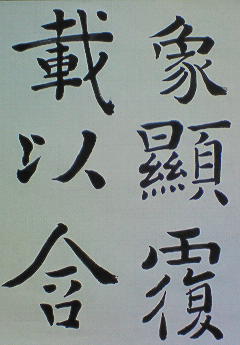 象顯覆
載以含